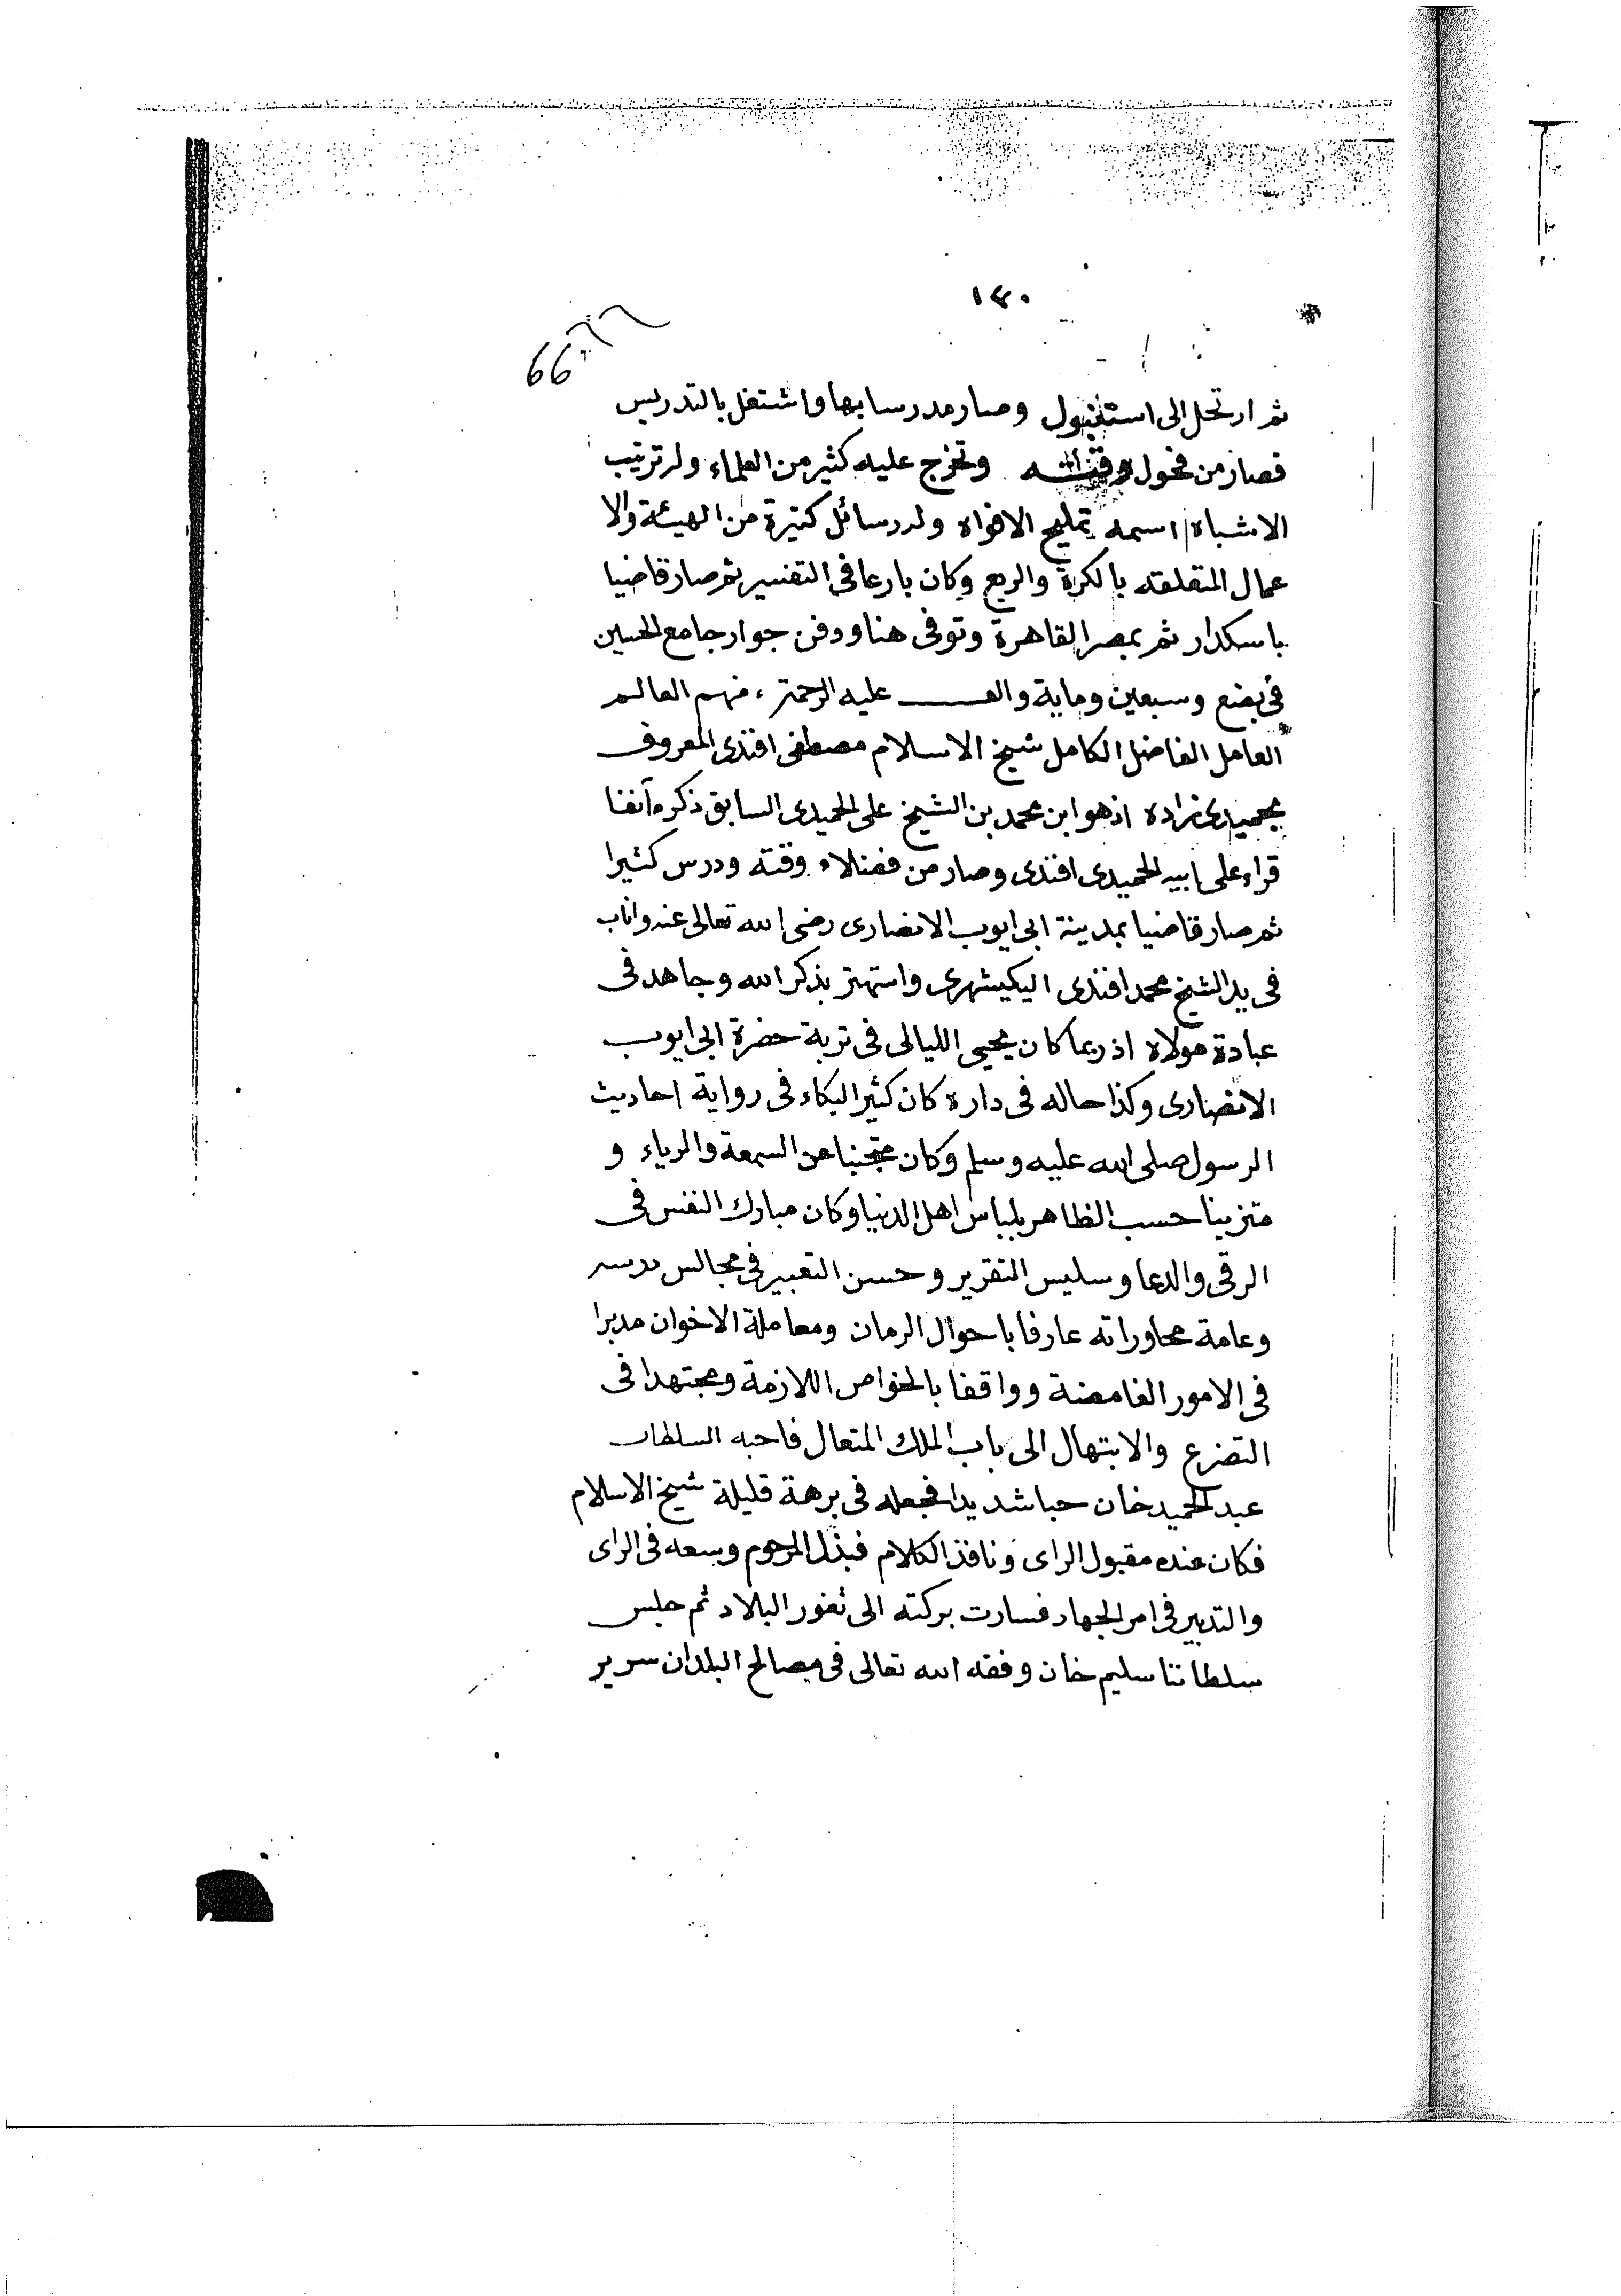 ١٣٠
66
٦٦
ثم ارتحل الى استنبول وصار مدرسا بها واشتغل بالتدريس
فصار من فحول وقته وتخرج عليه كثير من العلماء وله ترتيب
الاشباه اسمه تمليح الافواه وله رسائل كثيرة من الهيئة والا
عمال المتعلقه بالكرة والربع وكان بارعا فى التفسير ثم صار قاضيا
باسكدار ثم بمصر القاهرة وتوفى هنا ودفن جوار جامع الحسين
فى بضع وسبعين وماية والف عليه الرحمة، منهم العالم
العامل الفاضل الكامل شيخ الاسلام مصطفى افندى المعروف
بحميدى زاده اذ هو ابن محمد بن الشيخ على الحميدى السابق ذكره آنفا
قراء على ابيه الحميدى افندى وصار من فضلاء وقته ودرس كثيرا
ثم صار قاضيا بمدينة ابى ايوب الانصارى رضى الله تعالى عنه واناب
فى يد الشيخ محمد افندى اليكيشهرى واستهتر بذكر الله وجاهد فى
عبادة مولاه اذ ربما كان يحيى الليالى فى تربة حضرة ابى ايوب
الانصارى وكذا حاله فى داره كان كثير البكاء فى رواية احاديث
الرسول صلى الله عليه وسلم وكان مجتنبا عن السمعة والرياء و
متزينا حسب الظاهر بلباس اهل الدنيا وكان مبارك النفس فى
الرقى والدعا وسليس التقرير وحسن التعبير فى مجالس درسه
وعامة محاوراته عارفا باحوال الزمان ومعاملة الاخوان مدبرا
فى الامور الغامضة وواقفا بالخواص اللازمة ومجتهدا فى
التضرع والابتهال الى باب الملك المتعال فاحبه السلطان
عبد الحميد خان حبا شديدا فجعله فى برهة قليلة شيخ الاسلام
فكان عنده مقبول الراى ونافذ الكلام فبذل المرحوم وسعه فى الراى
والتدبير فى امر الجهاد فسارت بركته الى ثغور البلاد ثم جلس
سلطاننا سليم خان وفقه الله تعالى فى مصالح البلدان سرير